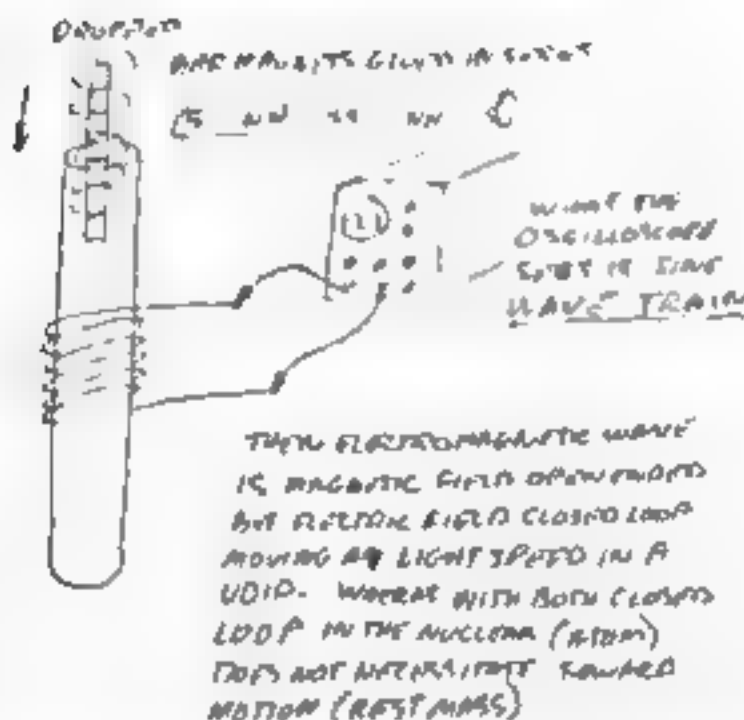 DROPPED
BAR MAGNETS GLUED IN
S NN SS NN
WHAT THE
OSCILLOSCOPE
SEES IS SINE
WAVE TRAIN
THEN ELECTROMAGNETIC WAVE
IS MAGNETIC FIELD OPEN ENDED
BUT ELECTRIC FIELD CLOSED LOOP
MOVING AT LIGHT SPEED IN A
VOID. WHEREAS WITH BOTH CLOSED
LOOP IN THE NUCLEAR (ATOM)
DOES NOT NECESSITATE FORWARD
MOTION (REST MASS)